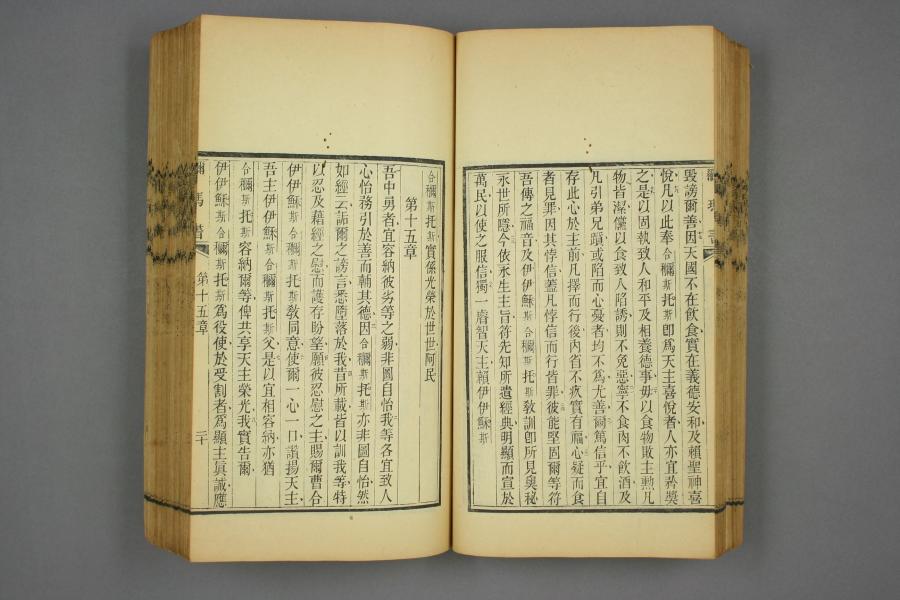 毀謗爾善因天國不在飲食實在義德安和及賴聖神喜
悅凡以此奉合穪斯托斯卽爲天主喜悅者人亦宜矜獎
之是以固執致人和平及相養德事毋以食物敗主勲凡
物皆潔儻以食致人陷誘則不免惡寧不食肉不飲酒及
凡引弟兄躓或陷而心憂者均不爲尤善爾篤信乎宜自
存此心於主前凡擇而行後內省不疚實有福心疑而食
者見罪因其悖信蓋凡悖信而行皆罪彼能堅固爾等符
吾傳之福音及伊伊穌斯合穪斯托斯敎訓卽所見奧秘
永世所隱今依永生主旨符先知所遺經典明顯而宣於
萬民以使之服信獨一睿智天主賴伊伊穌斯
合穪斯托斯實係光榮於世世阿民
第十五章
吾中勇者宜容納彼劣等之弱非圖自怡我等各宜致人
心怡務引於善而輔其德因合穪斯托斯亦非圖自怡然
如經云詬爾之謗言悉墮落於我昔所載皆以訓我等特
以忍及藉經之慰而護存盼望願彼忍慰之主賜爾曹合
伊伊穌斯合穪斯托斯敎同意使爾一心一口讚揚天主
吾主伊伊穌斯合穪斯托斯父是以宜相容納亦猶
合穪斯托斯容納爾等俾共享天主榮光我實告爾
伊伊穌斯合穪斯托斯爲役使於受割者爲顯主眞誠應
馬書
第十五章
二十